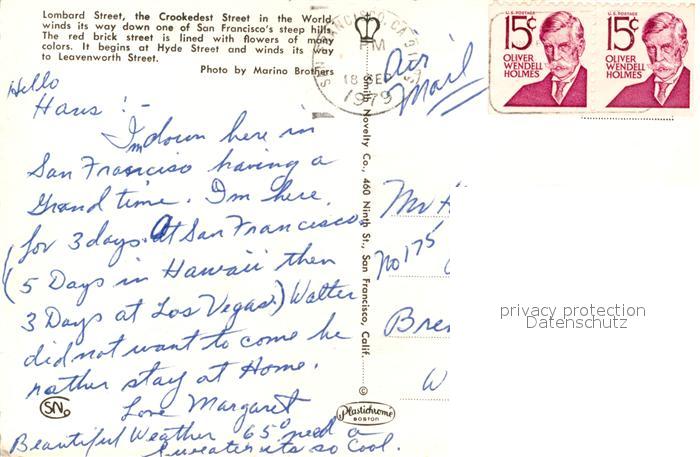 Lombard Street, the Crookedest Street in the World,
winds its way down one of San Francisco's steep hills.
The red brick street is lined with flowers of many
colors. It begins at Hyde Street and winds its way
to Leavenworth Street.
Photo by Marino Brothers
Hello
Hans! -
I'm down here in
San Francisco having a
Grand time. I'm here
for 3 days. At San Francisco
(5 Days in Hawaii then
3 Days at Los Vegas.) Walter
did not want to come he
rather stay at Home.
Love Margaret
Beautiful Weather 65° need a
sweater its so cool.
SN
Smith Novelty Co., 460 Ninth St., San Francisco, Calif.
©
Plastichrome
BOSTON
SAN FRANCISCO, CA
PM
18 SEP
1979
Air
Mail
U.S. POSTAGE
15¢
OLIVER
WENDELL
HOLMES
U.S. POSTAGE
15¢
OLIVER
WENDELL
HOLMES
Mr
No 175
Bre
W
privacy protection
Datenschutz